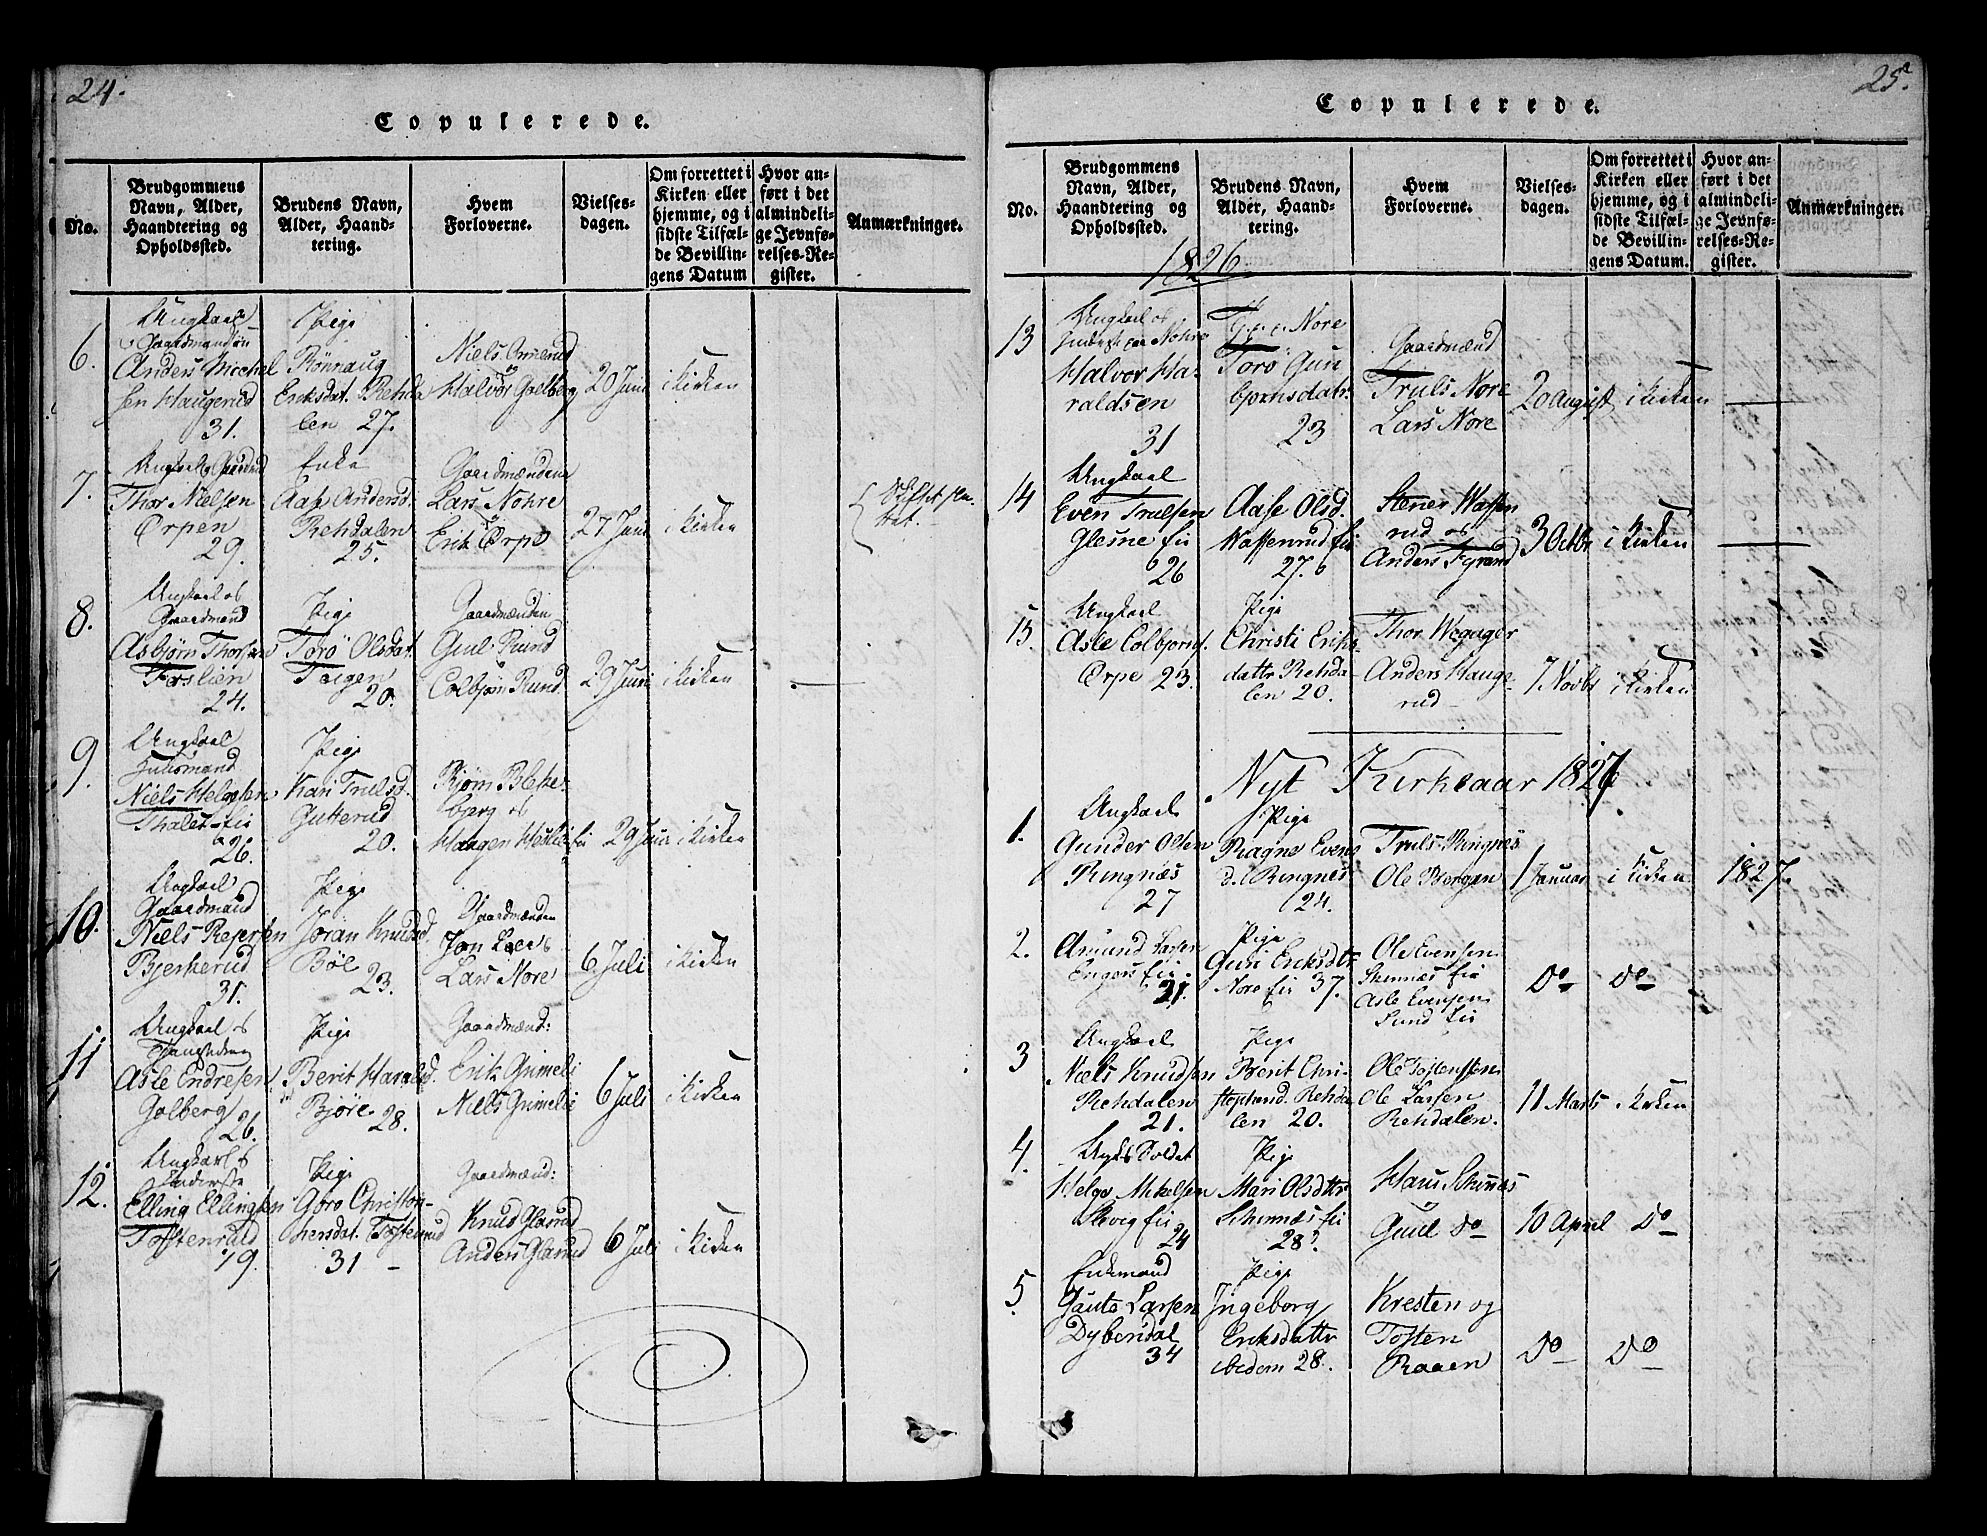 24.
Copulerede.
No.
Brudgommens Navn, Alder, Haandtering og Opholdssted.
Brudens Navn, Alder, Haandtering.
Hvem Forloverne.
Vielsesdagen.
Om forrettet i Kirken eller hjemme, og i sidste Tilfælde Bevillingens Datum
Hvor anført i det almindelige Jevnførelses-Register.
Anmærkninger.
6.
Ungkarl
Gaardmandsøn
Anders Michel
sen Haugerud
31.
Pige
Rønnaug
Eriksdat. Rehda
len 27.
Niels
Halvor Golberg
20 Juni
i Kirken
7.
Ungkarl
Thor Nielsen
Ørpen
29.
Enke
Aase Andersd.
Rehdalen
25.
Gaardmændene
Lars Nohre
Erik Ørpe
27 Juni
i Kirken
8.
Ungkarl og
Gaardmand
Asbjørn Thorsen
Foslien
24.
Pige
Torø Olsdat.
Toigen
20.
Gaardmænden
Gul. Rund
Colbjøn Rund.
29 Juni
i Kirken
9.
Ungkarl
Huusmand
Niels Helgesen
26.
Pige
Kari Trulsd.
Gutterud
20.
Bjørn Bleke-
bjerg og
Haagen
29 Juni
i Kirken
10.
Ungkarl
Gaardmand
Niels Repersen
Bjerkerud
31.
Pige
Jøran Knudsd.
Bøe
23.
Gaardmænden
Jon
Lars Nore
6 Juli
i Kirken
11
Ungkarl og
Asle Endresen
Golberg
26.
Pige
Berit Haralsd.
Bjøre 28.
Gaardmænd:
Erik Grimeli
Niels Grimelie
6 Juli
i Kirken
12.
Ungkarl og
Inderste
Elling Ellingsen
Tostenrud
Pige
Goro Christop-
hersdat. Tostenrud
31
Gaardmænd:
Knud Glarud
Anders Glarud
6 Juli
i Kirken
25.
Copulerede.
No.
Brudgommens Navn, Alder, Haandtering og Opholdssted.
Brudens Navn, Alder, Haandtering.
Hvem Forloverne.
Vielsesdagen.
Om forrettet i Kirken eller hjemme, og i sidste Tilfælde Bevillingens Datum.
Hvor anført i det almindelige Jevnførelses-Register.
Anmærkninger.
1826
13
Ungkarl og
Inderste paa Nohre
Halvor Ha-
raldsen
31
Nore
Torø Gun
bjørnsdatr.
23
Gaardmænd
Truls Nore
Lars Nore
20 August
i Kirken
14
Ungkarl
Even Trulsen
Glesne Eie
26
Aase Olsd.
Wassenrud Eie
27.
Stener Wassen
rud og
Anders
3 Octbr
i Kirken
15.
Ungkarl
Asle Colbjørns.
Ørpe 23.
Pige
Christi Eriks-
dattr Rehda-
len 20.
Thor
Anders Hauge-
rud
7 Novbr
i Kirken
Nyt Kirkeaar 1827.
1.
Ungkarl
Gunder Olsen
Ringnæs
27
Pige
Ragne Evens
d. Ringnes
24.
Truls Ringnes
Ole Bergan
1 Januar
i Kirken
1827.
2.
Amund Larsen
Engers Eie
21.
Pige
Guri Eriksdtr
Nore Eie 37.
Ole Evensen
Skinnæs Eie
Asle Evensen
Sund Eie
Do
Do
3
Ungkarl
Niels Knudsen
Rehdalen
21.
Pige
Berit Chri-
stophersd. Rehda
len 20.
Ole Tostensen
Ole Larsen
Rehdalen.
11 Marts
i Kirken
4.
Ungk. Soldat
Helge Mikelsen
Skrig Eie
24
Pige
Mari Olsdttr
Skinnæs Eie
28
Hans Skinnæs
Guul do
10 April
Do
5.
Enkemand
Gaute Larsen
Dybendal
34
Pige
Ingeborg
Eriksdattr
ibedem 28.
Kresten og
Tosten
Raaen
Do
Do